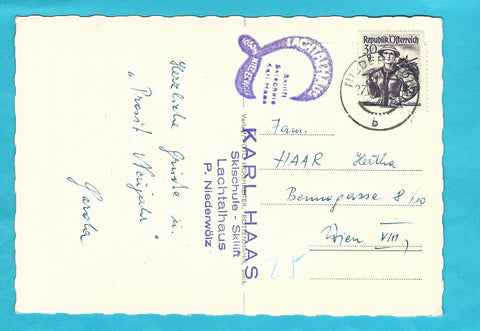 Herzliche Grüße u.
„Prosit Neujahr"
Gerda
LACHTALHAUS
Skilift
Skischule
Karl Haas
KARL HAAS
Skischule - Skilift
Lachtalhaus
P. Niederwölz
Republik Österreich
30
b
Fam.
HAAR Hertha
Bennogasse 8/10
Wien VIII,
25